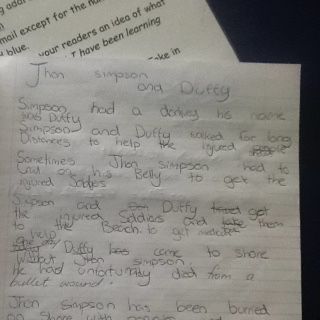 g addi
mail except for the nu
blue.
readers an idea of what
your
r have been learning
ake in
Jhon simpson
and Duffy
Simpson had a donkey his name
was Duffy
Simpson and Duffy walked for long
Distances to help the injured
Sometimes Jhon simpson had to
on his Belly to get the
injured
Simpson and Duffy get
the injured and take them
to the Beach. to get
help
Duffy came to shore
without Jhon simpson.
He had unfortunatly died from a
bullet wound.
Jhon Simpson has been burried